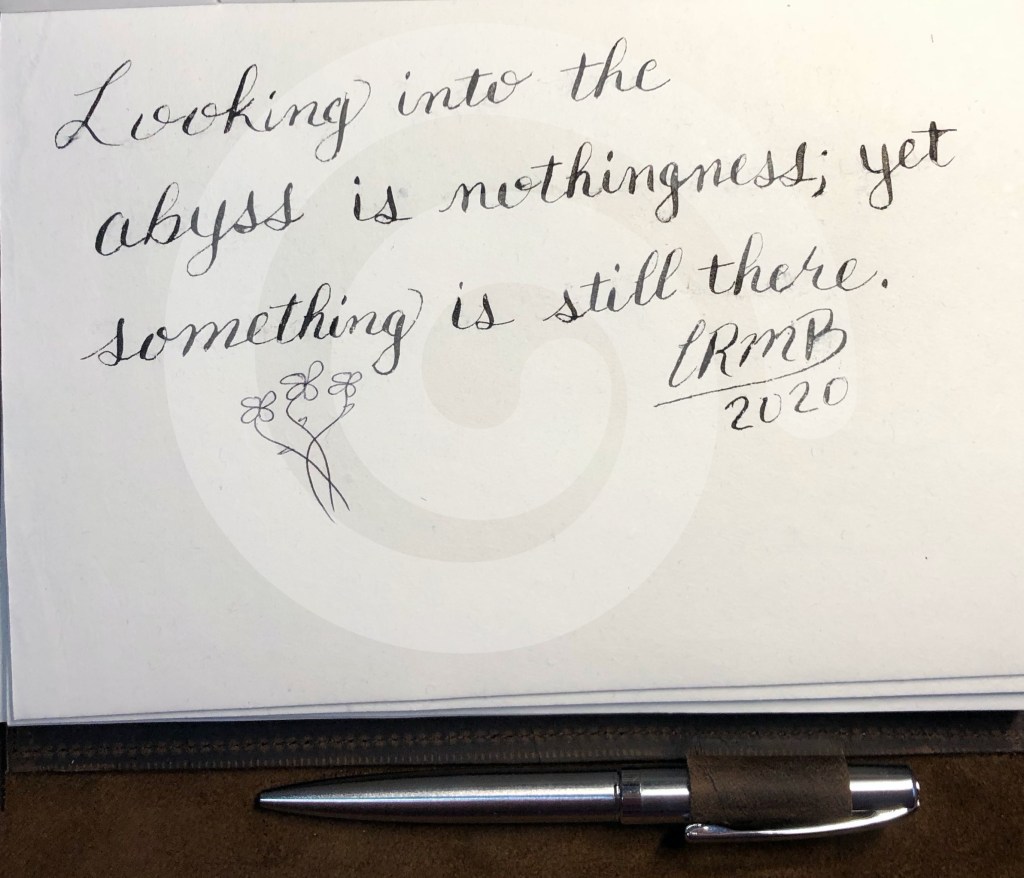 Looking into the
abyss is nothingness; yet
something is still there.
LRMB
2020